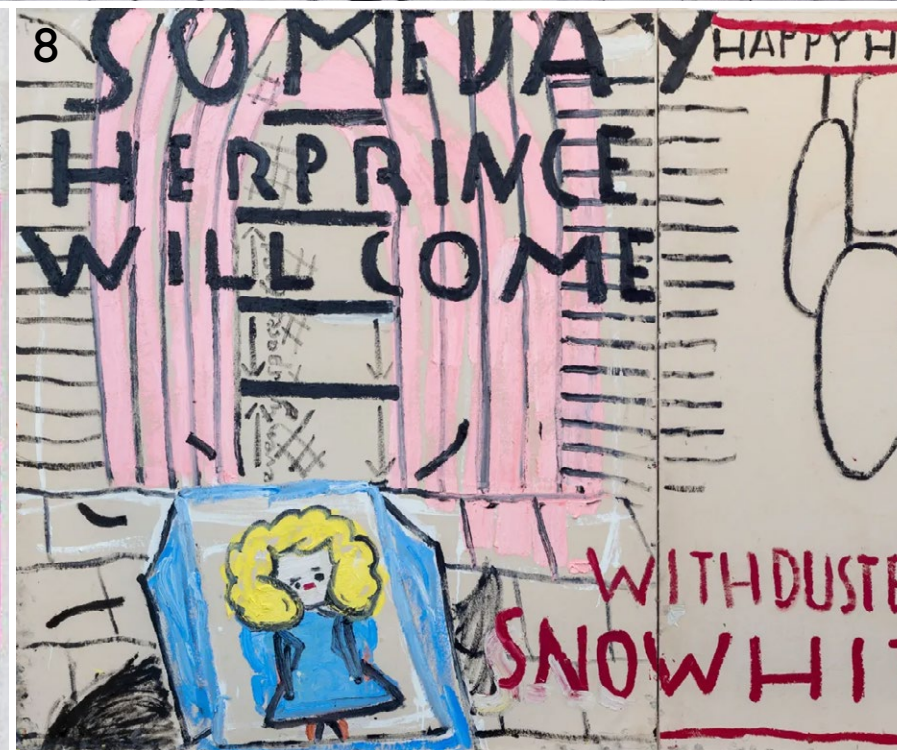 8
SOMEDAY
HERPRINCE
WILL COME
HAPPY H
WITHDUSTE
SNOWHIT